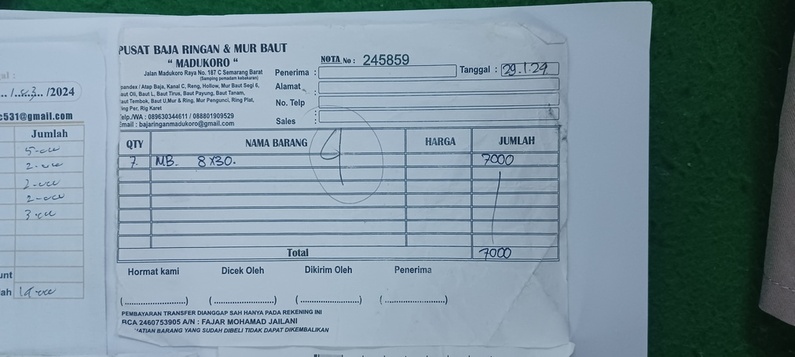 al :
../..5..3.../2024
c531@gmail.com
Jumlah
unt
ah
PUSAT BAJA RINGAN & MUR BAUT
" MADUKORO "
Jalan Madukoro Raya No. 187 C Semarang Barat
(Samping pemadam kebakaran)
pandex / Atap Baja, Kanal C, Reng, Hollow, Mur Baut Segi 6,
aut Oli, Baut L, Baut Tirus, Baut Payung, Baut Tanam,
aut Tembok, Baut U,Mur & Ring, Mur Pengunci, Ring Plat,
ing Per, Rig Karet
Telp./WA : 089630344611 / 088801909529
Email : bajaringanmadukoro@gmail.com
NOTA No : 245859
Penerima :
Tanggal : 29.1.24
Alamat :
No. Telp :
Sales :
QTY NAMA BARANG HARGA JUMLAH
7 MB. 8x30. 7000
4
Total 7000
Hormat kami Dicek Oleh Dikirim Oleh Penerima
(....................) (....................) (....................) (....................)
PEMBAYARAN TRANSFER DIANGGAP SAH HANYA PADA REKENING INI
BCA 2460753905 A/N : FAJAR MOHAMAD JAILANI
HATIAN BARANG YANG SUDAH DIBELI TIDAK DAPAT DIKEMBALIKAN